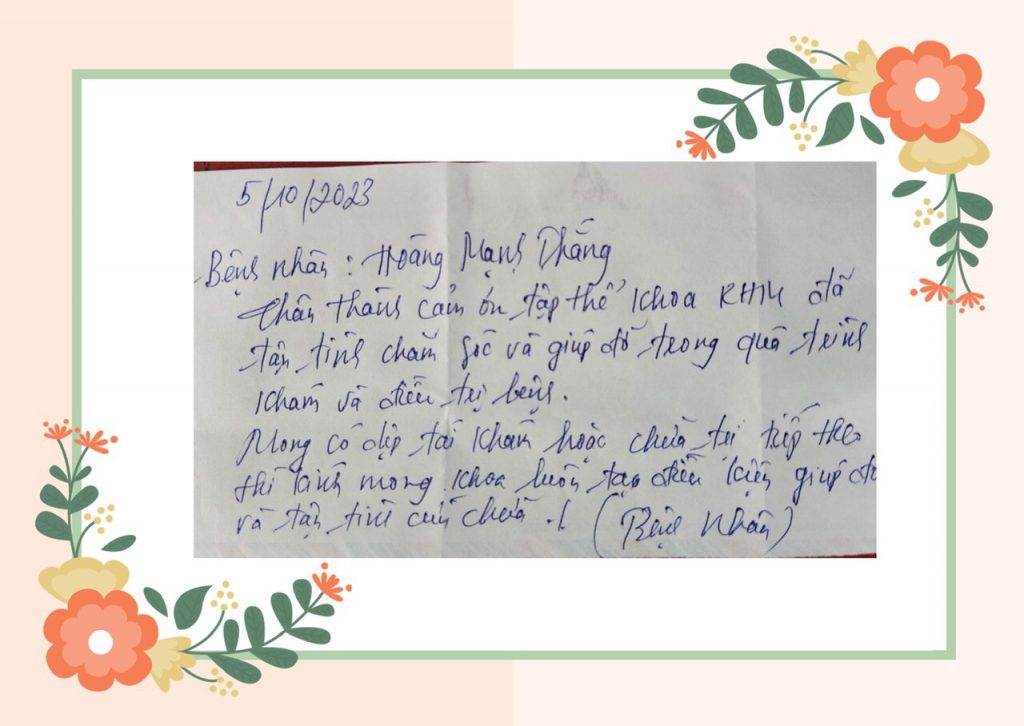 5/10/2023
Bệnh nhân : Hoàng Mạnh Thắng
Chân thành cảm ơn tập thể khoa RHM đã
tận tình chăm sóc và giúp đỡ trong quá trình
khám và điều trị bệnh.
Mong có dịp tái khám hoặc chữa trị tiếp theo
thì kính mong khoa luôn tạo điều kiện giúp đỡ
và tận tình cứu chữa ./. (Bệnh nhân)